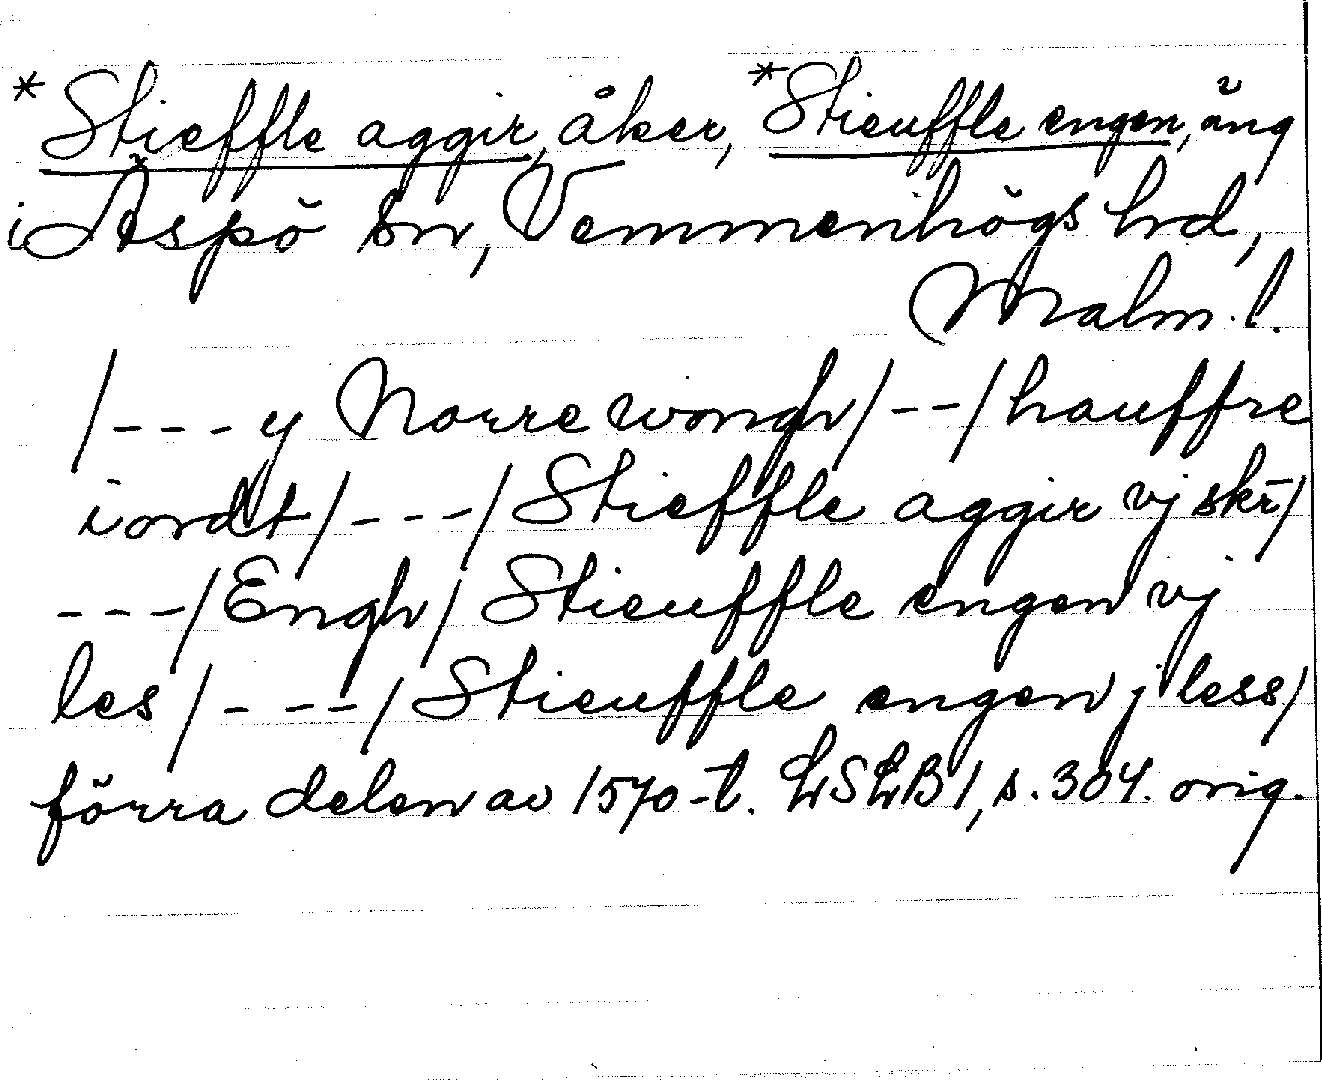 *Stieffle aggir, åker, *Stieuffle engen, äng
i Äspö sn, Vemmenhögs hrd,
Malm. l.
/---y Norre wongh/--/hauffre
iordt/---/Stieffle aggir vj skr/
---/Engh/Stieuffle engen vj
les/---/Stieuffle engen j less/
förra delen av 1570-t. LSLB1, s. 304. orig.